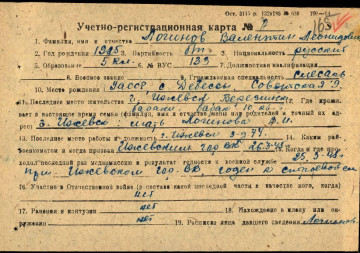 Учетно-регистрационная карта № 2
1. Фамилия, имя и отчество Логинов Валентин Леонидович
2. Год рождения 1925 3. Партийность б/п 4. Национальность русский
5. Образование 5 кл. 6. № ВУС 133 7. Должностная квалификация
8. Военное звание 9. Гражданская специальность слесарь
10. Место рождения УАССР с. Дебесы Советская
11. Последнее место жительства г. Ижевск 12. Где прожи-
вает в настоящее время семья (фамилия, имя и отчество жены или родителей и точный их ад-
рес) г. Ижевск мать Логинова
13. Последнее место работы и должность г. Ижевск з-д 74. 14. Каким рай-
военкоматом и когда призван Ижевским гор. ВК 15. Когда и где про-
ходил последний раз медкомиссию и результат годности к военной службе
при Ижевском гор. ВК годен к строевой сл.
16. Участие в Отечественной войне (в составе какой последней части и качестве кого, когда)
нет
17. Ранения и контузии нет 18. Нахождение в плену или
окружении нет 19. Расписка лица давшего сведения Логинов